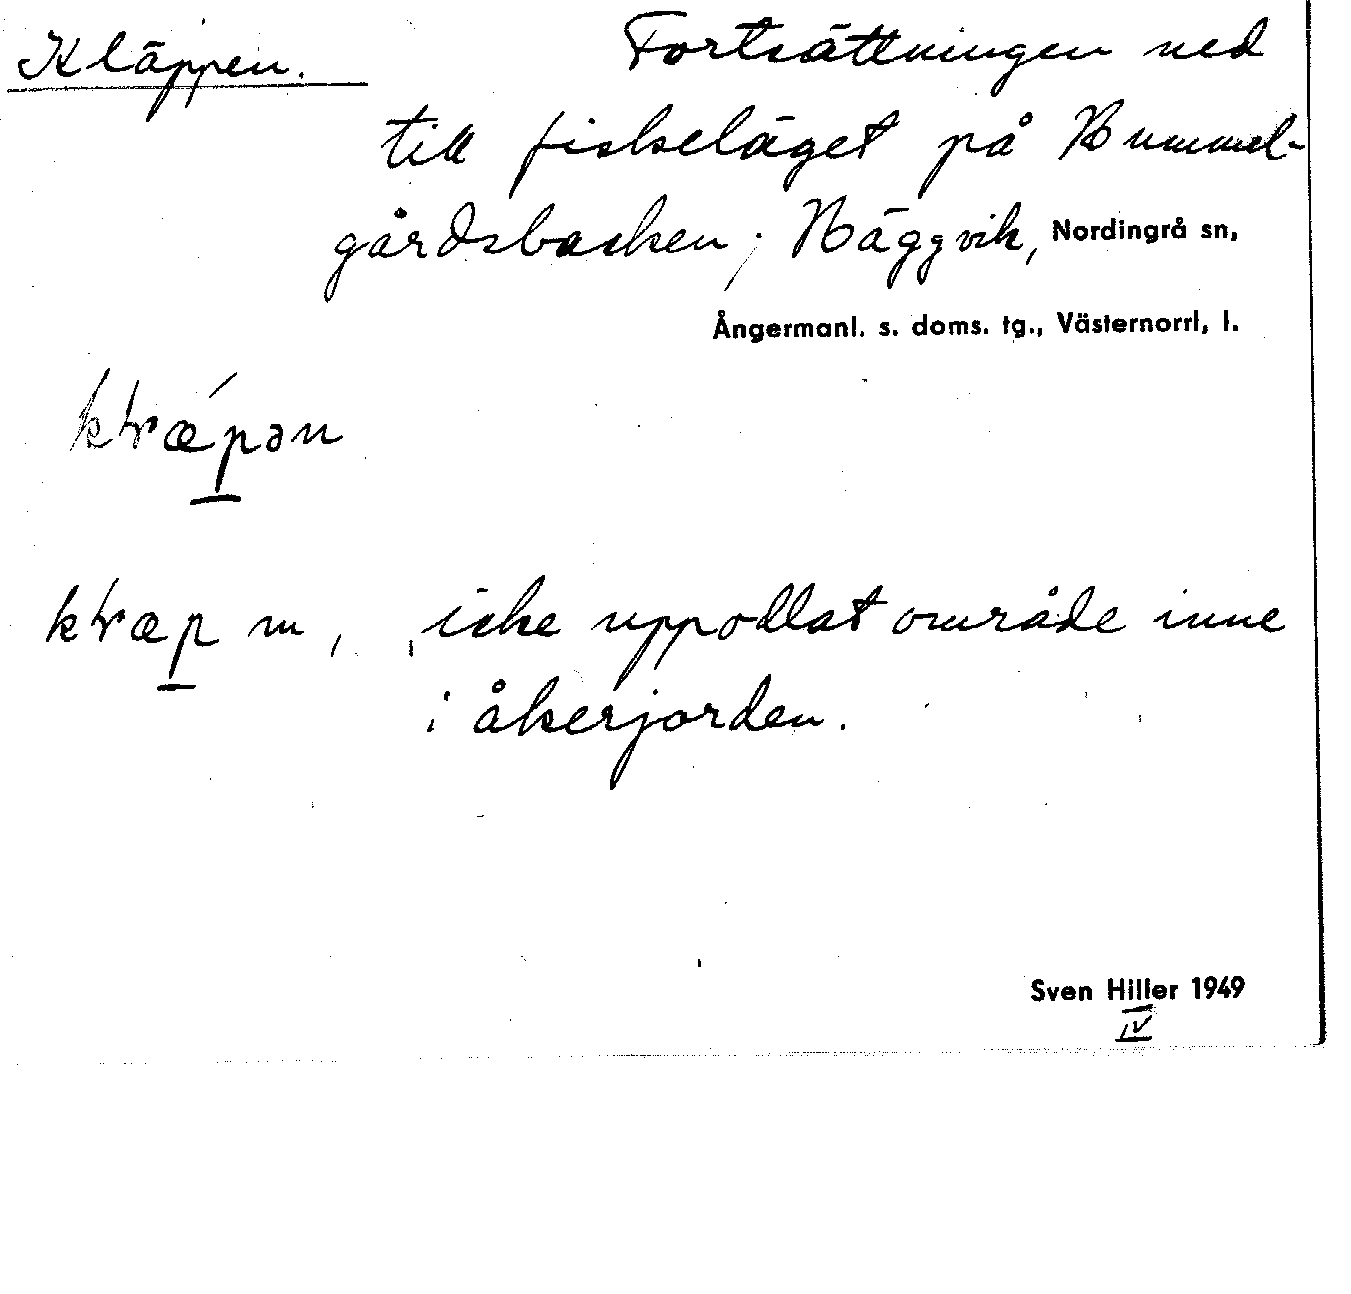 Kläppen. Fortsättningen ned
till fiskeläget på Hummel-
gårdsbacken; Häggvik, Nordingrå sn,
Ångermanl. s. doms. tg., Västernorrl, l.
icke uppodlat område inne
i åkerjorden.
Sven Hiller 1949
IV